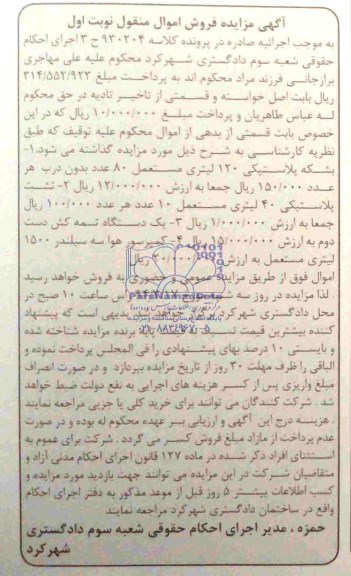 آگهی مزایده فروش اموال منقول نوبت اول
به موجب اجرائیه صادره در پرونده کلاسه ۹۳۰۲۰۴ ح ۳ اجرای احکام
حقوقی شعبه سوم دادگستری شهرکرد محکوم علیه علی مهاجری
برازجانی فرزند مراد محکوم اند به پرداخت مبلغ ۳۱۴/۵۵۲/۹۲۳
ریال بابت اصل خواسته و قسمتی از تاخیر تادیه در حق محکوم
له عباس طاهریان و پرداخت مبلغ ۱۰/۰۰۰/۰۰۰ ریال که در این
خصوص بابت قسمتی از بدهی از اموال محکوم علیه توقیف که طبق
نظریه کارشناسی به شرح ذیل مورد مزایده گذاشته می شود.۱-
بشکه پلاستیکی ۱۲۰ لیتری مستعمل ۸۰ عدد بدون درب هر
عدد ۱۵۰/۰۰۰ ریال جمعا به ارزش ۱۲/۰۰۰/۰۰۰ ریال ۲- تشت
پلاستیکی ۴۰ لیتری مستعمل ۱۰ عدد هر عدد ۱۰۰/۰۰۰ ریال
جمعا به ارزش ۱/۰۰۰/۰۰۰ ریال ۳- یک دستگاه تسمه کش دست
دوم به ارزش ۱۵/۰۰۰/۰۰۰ ریال ۴- کمپرسور هوا سه سیلندر ۱۵۰۰
لیتری مستعمل به ارزش
اموال فوق از طریق مزایده عمومی و حضوری به فروش خواهد رسید
. لذا مزایده در روز سه ساعت ۱۰ صبح در
محل دادگستری شهرکرد بدیهی است که پیشنهاد
کننده بیشترین قیمت برنده مزایده شناخته شده
و بایستی ۱۰ درصد بهای پیشنهادی را فی المجلس پرداخت نموده و
الباقی را ظرف مهلت ۳۰ روز از تاریخ مزایده بپردازد و در صورت انصراف
مبلغ واریزی پس از کسر هزینه های اجرایی به نفع دولت ضبط خواهد
شد . شرکت کنندگان می توانند برای خرید کلی یا جزیی مراجعه نمایند
. هزینه درج این آگهی و ارزیابی بر عهده محکوم له بوده و در صورت
عدم پرداخت از مازاد مبلغ فروش کسر می گردد . شرکت برای عموم به
استثنای افراد ذکر شده در ماده ۱۲۷ قانون اجرای احکام مدنی آزاد و
متقاضیان شرکت در این مزایده می توانند جهت بازدید مورد مزایده و
کسب اطلاعات بیشتر ۵ روز قبل از موعد مذکور به دفتر اجرای احکام
واقع در ساختمان دادگستری شهرکرد مراجعه نمایند
حمزه ، مدیر اجرای احکام حقوقی شعبه سوم دادگستری
شهرکرد